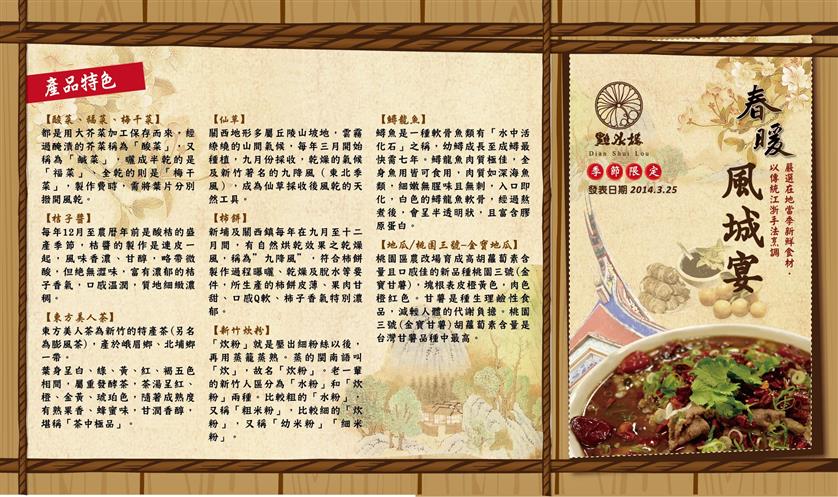 產品特色
【酸菜、福菜、梅干菜】
都是用大芥菜加工保存而來，經
過醃漬的芥菜稱為「酸菜」，又
稱為「鹹菜」，曬成半乾的是
「福菜」，全乾的則是「梅干
菜」，製作費時，需將葉片分別
撥開風乾。
【桔子醬】
每年12月至農曆年前是酸桔的盛
產季節，桔醬的製作是連皮一
起，風味香濃、甘醇，略帶微
酸，但絕無澀味，富有濃郁的桔
子香氣，口感溫潤，質地細緻濃
稠。
【東方美人茶】
東方美人茶為新竹的特產茶(另名
為膨風茶)，產於峨眉鄉、北埔鄉
一帶。
葉身呈白、綠、黃、紅、褐五色
相間，屬重發酵茶，茶湯呈紅、
橙、金黃、琥珀色，隨著成熟度
有熟果香、蜂蜜味，甘潤香醇，
堪稱「茶中極品」。
【仙草】
關西地形多屬丘陵山坡地，雲霧
繚繞的山間氣候，每年三月開始
種植，九月份採收，乾燥的氣候
及新竹著名的九降風（東北季
風），成為仙草採收後風乾的天
然工具。
【柿餅】
新埔及關西鎮每年在九月至十二
月間，有自然烘乾效果之乾燥
風，稱為”九降風”，符合柿餅
製作過程曝曬、乾燥及脫水等要
件，所生產的柿餅皮薄、果肉甘
甜、口感Q軟、柿子香氣特別濃
郁。
【新竹炊粉】
「炊粉」就是壓出細粉絲以後，
再用蒸籠蒸熟。蒸的閩南語叫
「炊」，故名「炊粉」。老一輩
的新竹人區分為「水粉」和「炊
粉」兩種。比較粗的「水粉」，
又稱「粗米粉」，比較細的「炊
粉」，又稱「幼米粉」「細米
粉」。
【鱘龍魚】
鱘魚是一種軟骨魚類有「水中活
化石」之稱，幼鱘成長至成鱘最
快需七年。鱘龍魚肉質極佳，全
身魚用皆可食用，肉質如深海魚
類，細嫩無腥味且無刺，入口即
化，白色的鱘龍魚軟骨，經過熬
煮後，會呈半透明狀，且富含膠
原蛋白。
【地瓜/桃園三號-金寶地瓜】
桃園區農改場育成高胡蘿蔔素含
量且口感佳的新品種桃園三號(金
寶甘薯)，塊根表皮橙黃色，肉色
橙紅色。甘薯是種生理鹼性食
品，減輕人體的代謝負擔。桃園
三號(金寶甘薯)胡蘿蔔素含量是
台灣甘薯品種中最高。
點水樓
Dian Shui Lou
季節限定
發表日期 2014.3.25
春暖
風城宴
嚴選在地當季新鮮食材，
以傳統江浙手法烹調